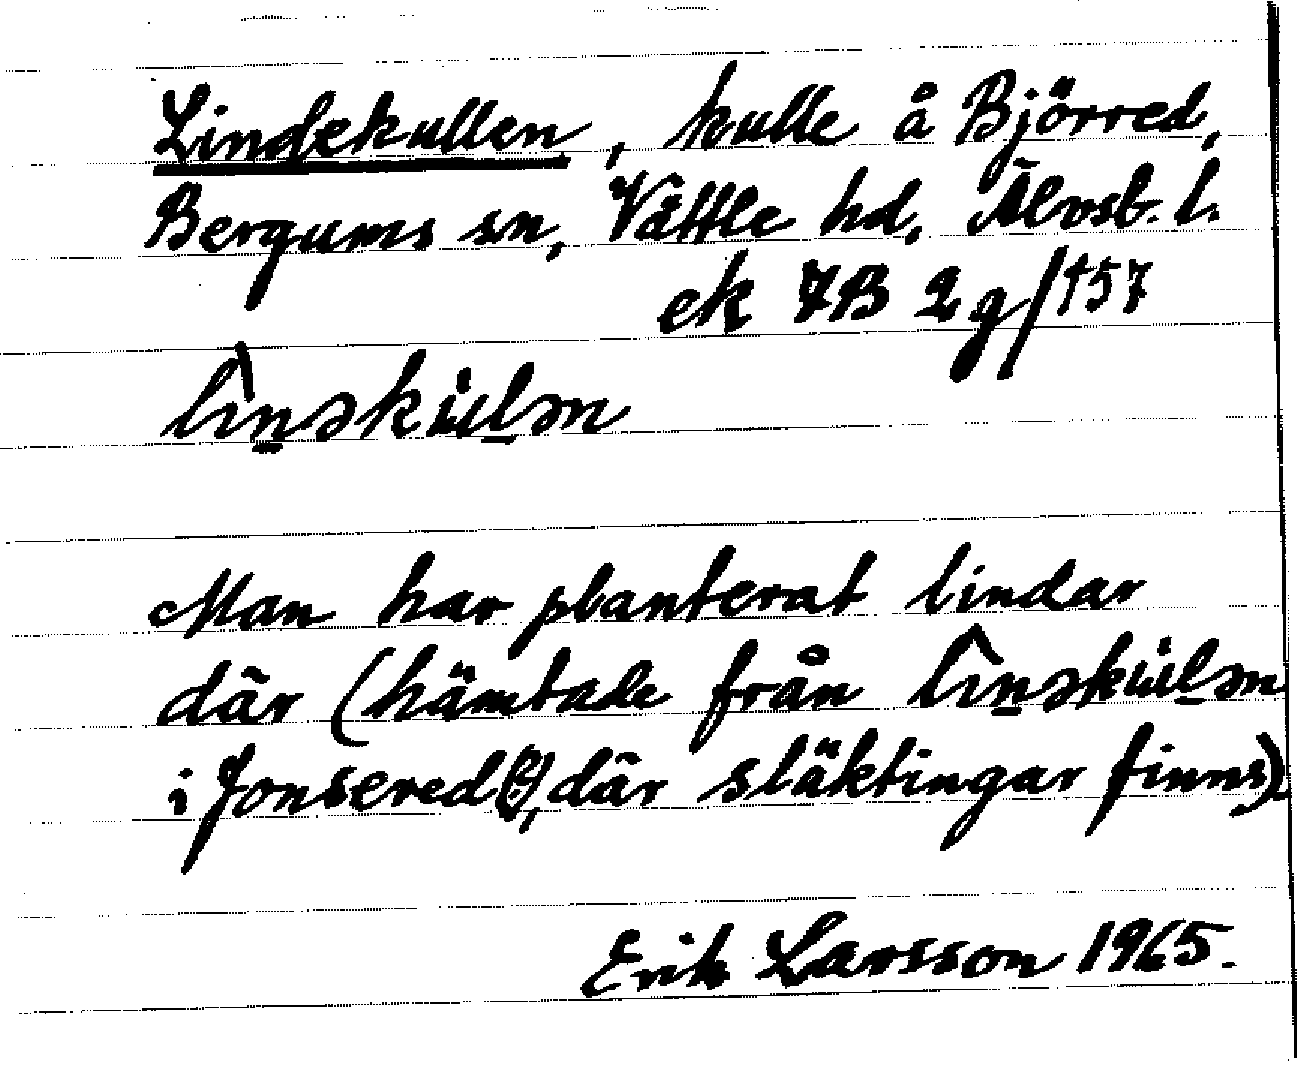 Lindekullen, kulle å Björred,
Bergums sn, Vättle hd, Älvsb. l.
ek 7B 2g/157
lînəkülən
Man har planterat lindar
där (hämtade från lînəkülən
i Jonsered(?), där släktingar finns).
Erik Larsson 1965.